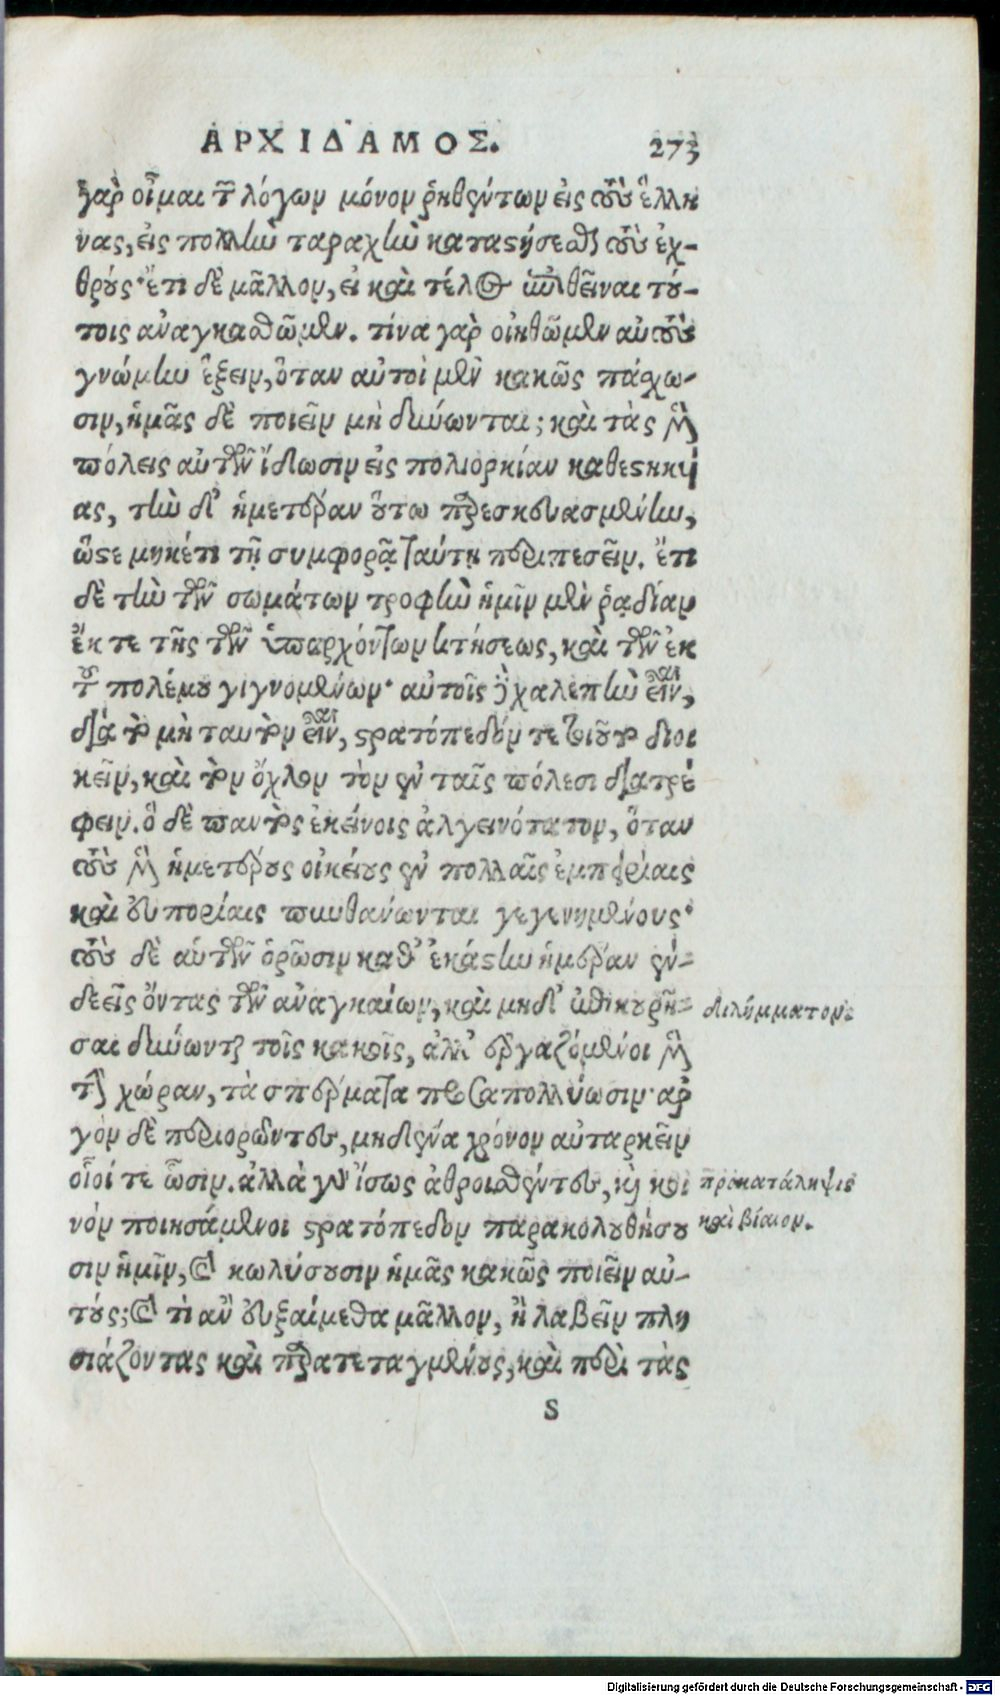 ΑΡΧΙΔΑΜΟΣ. 273
γὰρ οἶμαι τῶν λόγων μόνον ῥηθέντων εἰς τοὺς ἕλλη
νας, εἰς πολλὴν ταραχὴν καταστήσεσθαι τοὺς ἐχ-
θρούς· ἔτι δὲ μᾶλλον, εἰ καὶ τέλος ἐπιθεῖναι τού-
τοις ἀναγκασθῶμεν. τίνα γὰρ οἰηθῶμεν αὐτοὺς
γνώμην ἕξειν, ὅταν αὐτοὶ μὲν κακῶς πάσχω-
σιν, ἡμᾶς δὲ ποιεῖν μὴ δύνωνται; καὶ τὰς μὲν
πόλεις αὐτῶν ἴδωσιν εἰς πολιορκίαν καθεστηκυί
ας, τὴν δ' ἡμετέραν οὕτω παρεσκευασμένην,
ὥστε μηκέτι τῇ συμφορᾷ ταύτῃ περιπεσεῖν. ἔτι
δὲ τὴν τῶν σωμάτων τροφὴν ἡμῖν μὲν ῥᾳδίαν
ἔκ τε τῆς τῶν ὑπαρχόντων κτήσεως, καὶ τῶν ἐκ
τοῦ πολέμου γιγνομένων· αὐτοῖς δὲ χαλεπὴν εἶναι,
διὰ τὸ μὴ ταυτὸν εἶναι, στρατόπεδόν τε τοιοῦτο διοι
κεῖν, καὶ τὸν ὄχλον τὸν ἐν ταῖς πόλεσι διατρέ
φειν. ὃ δὲ παντὸς ἐκείνοις ἀλγεινότατον, ὅταν
τοὺς μὲν ἡμετέρους οἰκείους ἐν πολλαῖς ἐμπορίαις
καὶ εὐπορίαις πυνθάνωνται γεγενημένους·
τοὺς δὲ αὑτῶν ὁρῶσιν καθ' ἑκάστην ἡμέραν ἐν-
δεεῖς ὄντας τῶν ἀναγκαίων, καὶ μηδ' ἐπικουρῆ-
σαι δύνωνται τοῖς κακοῖς, ἀλλ' ἐργαζόμενοι μὲν
τὴν χώραν, τὰ σπέρματα προσαπολλύωσιν· ἀρ
γὸν δὲ περιορῶντες, μηδένα χρόνον αὐταρκεῖν
οἷοί τε ὦσιν. ἀλλὰ γὰρ ἴσως ἀθροισθέντες, καὶ κοι
νὸν ποιησάμενοι στρατόπεδον παρακολουθήσου
σιν ἡμῖν, καὶ κωλύσουσιν ἡμᾶς κακῶς ποιεῖν αὐ-
τούς; καὶ τί ἂν εὐξαίμεθα μᾶλλον, ἢ λαβεῖν πλη
σιάζοντας καὶ παρατεταγμένους, καὶ περὶ τὰς
S
διλήμματον.
προκατάληψις
καὶ βίαιον.
Digitalisierung gefördert durch die Deutsche Forschungsgemeinschaft - DFG